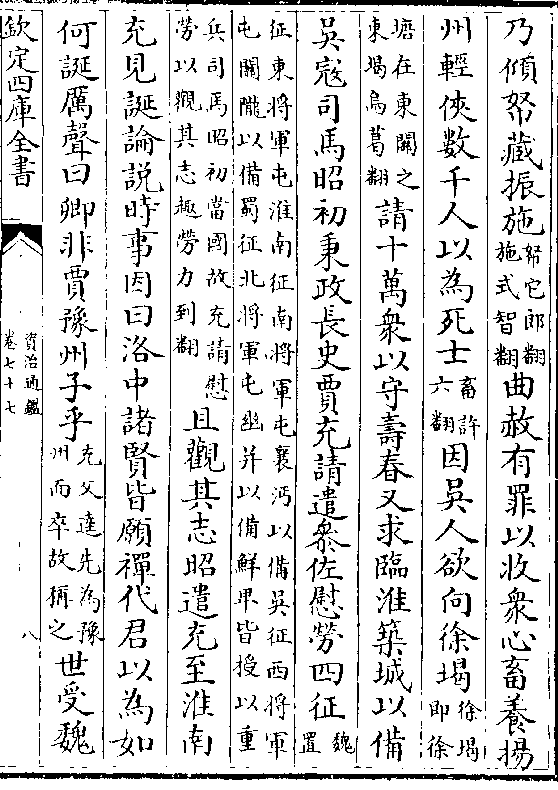 乃傾帑藏振施帑它郎翻
施式智翻曲赦有罪以收衆心畜養揚
州輕俠數千人以為死士畜許
六翻因吳人欲向徐堨徐堨
即徐
塘在東關之
東堨烏葛翻請十萬衆以守壽春又求臨淮築城以備
吳寇司馬昭初秉政長史賈充請遣叅佐慰勞四征魏
置
征東將軍屯淮南征南將軍屯襄沔以備吳征西將軍
屯關隴以備蜀征北將軍屯幽并以備鮮卑皆授以重
兵司馬昭初當國故充請慰
勞以觀其志趣勞力到翻且觀其志昭遣充至淮南
充見誕論說時事因曰洛中諸賢皆願禪代君以為如
何誕厲聲曰卿非賈豫州子乎充父逵先為豫
州而卒故稱之世受魏
欽定四庫全書
資治通鑑
卷七十七
八